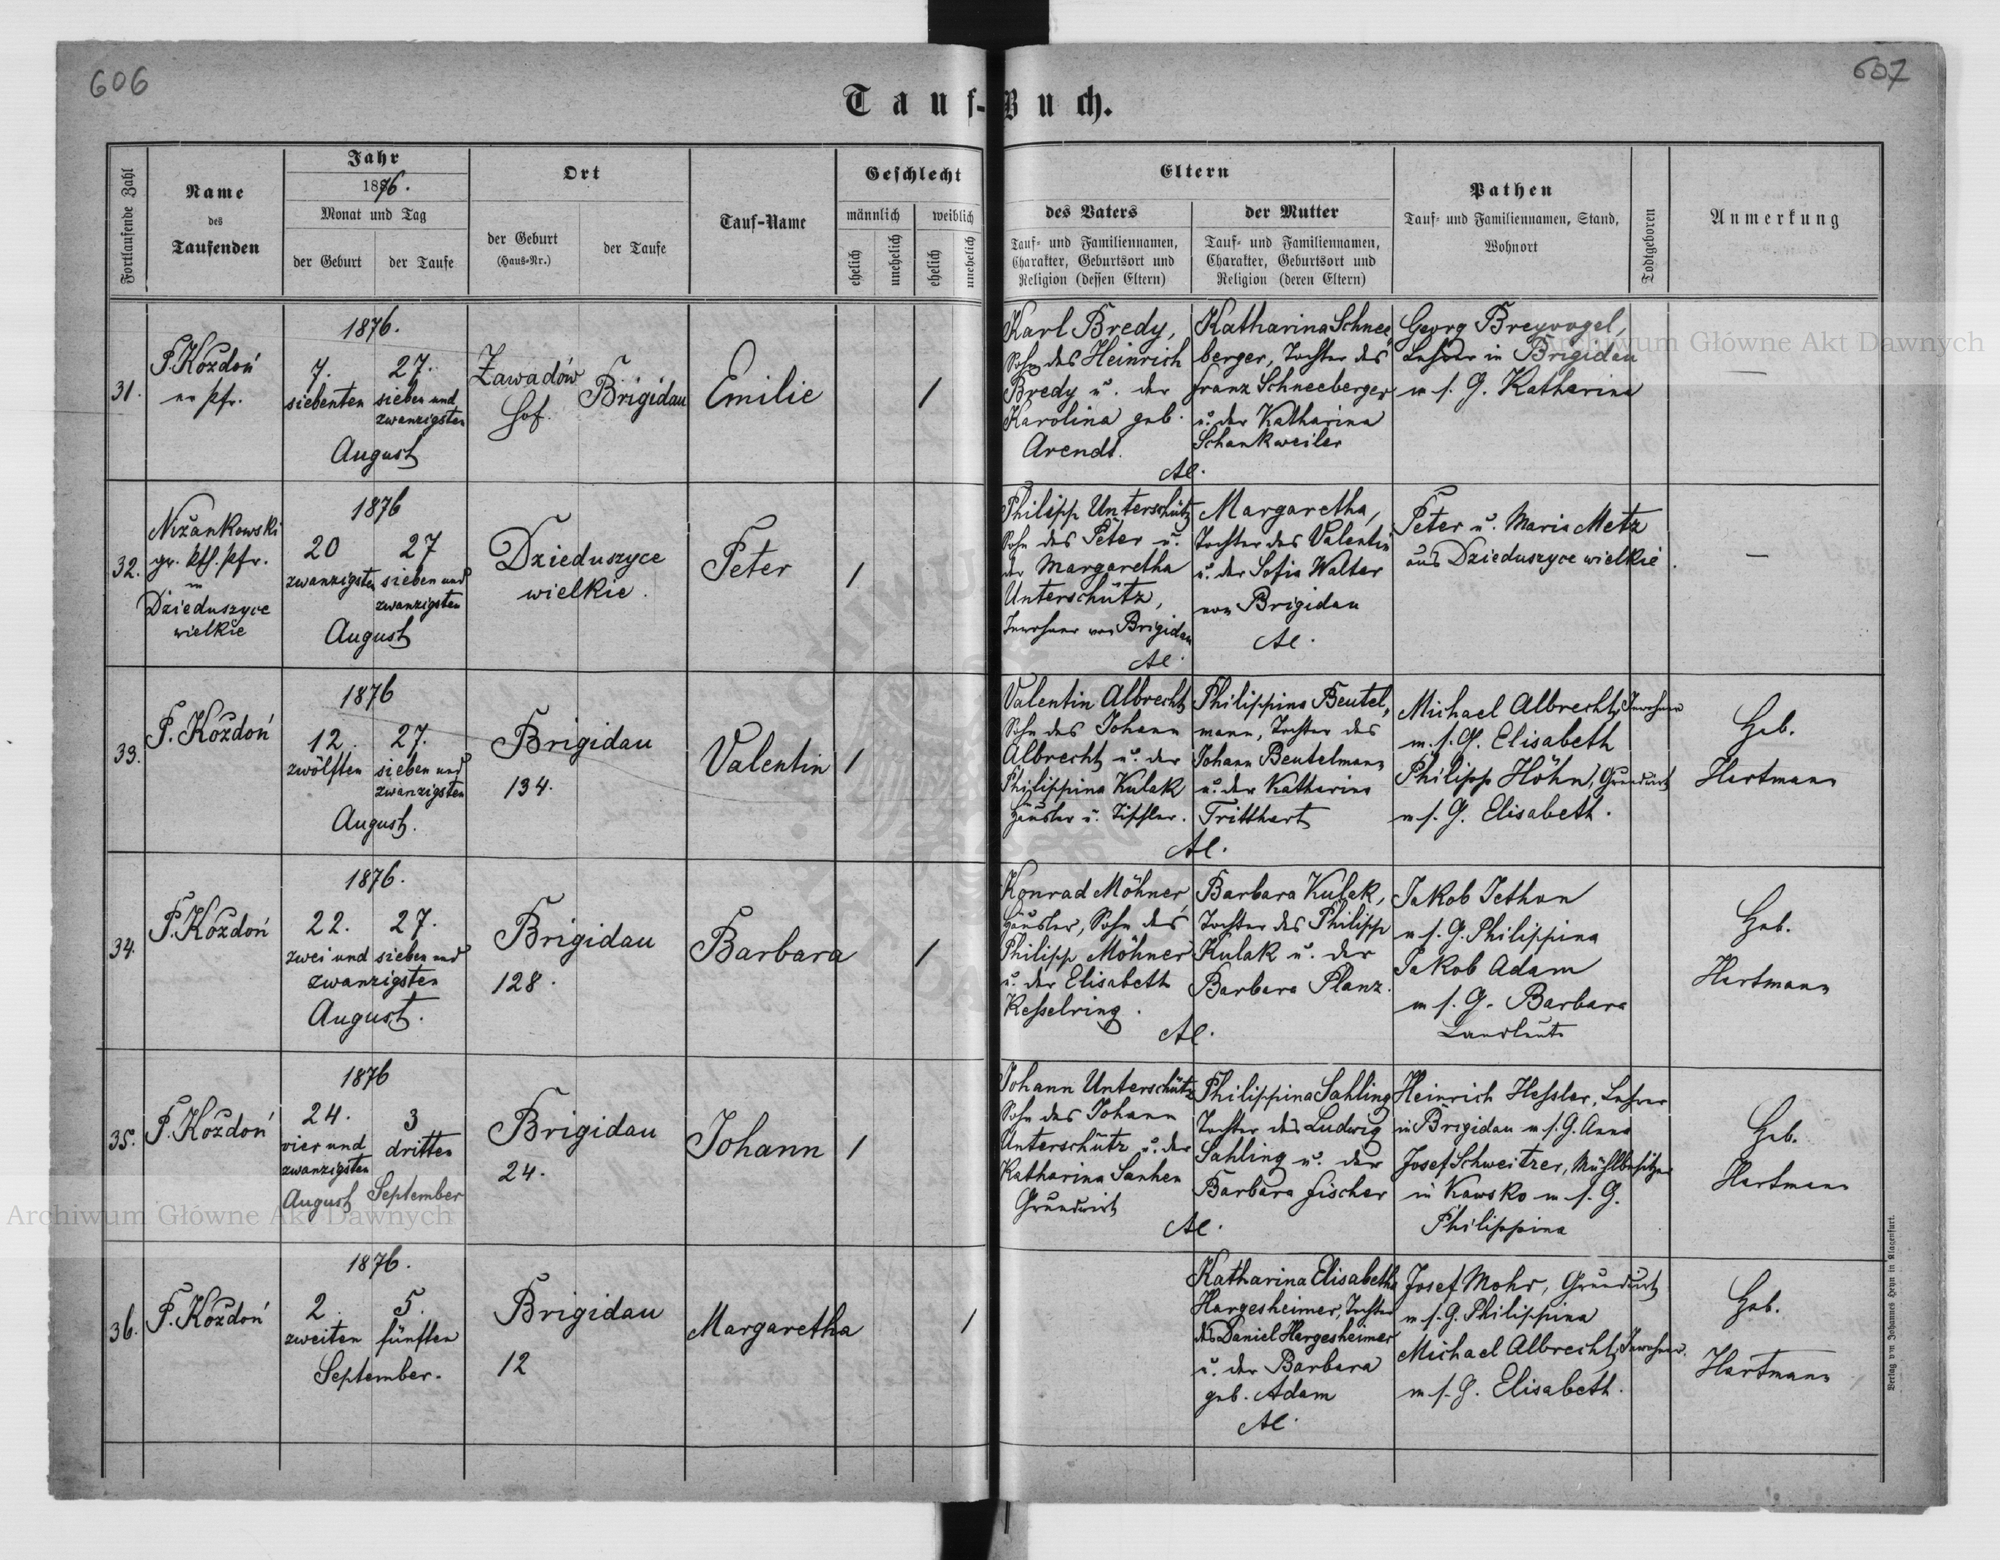 606
607
Tauf-Buch.
Fortlaufende Zahl
Name
des
Taufenden
Jahr
1876.
Monat und Tag
der Geburt
der Taufe
Ort
der Geburt
(Haus-Nr.)
der Taufe
Tauf-Name
Geschlecht
männlich
weiblich
ehelich
unehelich
ehelich
unehelich
Eltern
des Vaters
Tauf- und Familiennamen,
Charakter, Geburtsort und
Religion (dessen Eltern)
der Mutter
Tauf- und Familiennamen,
Charakter, Geburtsort und
Religion (deren Eltern)
Pathen
Tauf- und Familiennamen, Stand,
Wohnort
Todtgeboren
Anmerkung
31.
P. Kozdoń
ev Pfr.
1876.
7.
siebenten
27.
sieben und
zwanzigsten
August
Zawadów
Hof.
Brigidau
Emilie
1
Karl Bredy,
Sohn des Heinrich
Bredy u. der
Karolina geb.
Arendt.
Katharina Schnee
berger, Tochter des
Franz Schneeberger
u. der Katharina
Schankweiler
AC.
Georg Breyvogel,
Lehrer in Brigidau
m s. G. Katharina
—
32.
Nižankowski
gr. kth. Pfr.
in
Dzieduszyce
wielkie
1876
20
zwanzigsten
27
sieben und
zwanzigsten
August
Dzieduszyce
wielkie.
Peter
1
Philipp Unterschütz
Sohn des Peter u.
der Margaretha
Unterschütz,
Inwohner von Brigidau
AC.
Margaretha,
Tochter des Valentin
u. der Sofia Walter
von Brigidau
AC.
Peter u. Maria Metz
aus Dzieduszyce wielkie.
—
33.
P. Kozdoń
1876
12.
zwölften
27.
sieben und
zwanzigsten
August.
Brigidau
134.
Valentin
1
Valentin Albrecht
Sohn des Johann
Albrecht u. der
Philippina Kulak
Häusler u. Tischler.
Philippina Beutel,
mann, Tochter des
Johann Beutelmann
u. der Katharina
Tritthart
AC.
Michael Albrecht, Inwohner
m. s. G. Elisabeth
Philipp Höhn, Grundwirt
m s. G. Elisabeth.
Heb.
Hartmann
34.
P. Kozdoń
1876.
22.
27.
zwei und sieben und
zwanzigsten
August.
Brigidau
128.
Barbara
1
Konrad Möhner,
Häusler, Sohn des
Philipp Möhner
u. der Elisabeth
Kesselring.
Barbara Kulak,
Tochter des Philipp
Kulak u. der
Barbara Planz.
AC.
Jakob Jethon
m s. G. Philippina
Jakob Adam
m s. G. Barbara
Landleute
Heb.
Hartmann
35.
P. Kozdoń
1876
24.
vier und
zwanzigsten
August
3
dritten
September
Brigidau
24.
Johann
1
Johann Unterschütz
Sohn des Johann
Unterschütz u. der
Katharina Sanhen
Grundwirt
Philippina Sahling
Tochter des Ludwig
Sahling u. der
Barbara Fischer
AC.
Heinrich Hessler, Lehrer
in Brigidau m s. G. Anna
Josef Schweitzer, Mühlbesitzer
in Kawsko m s. G.
Philippina
Heb.
Hartmann
36.
P. Kozdoń
1876.
2.
zweiten
5.
fünften
September.
Brigidau
12
Margaretha
1
Katharina Elisabetha
Hargesheimer, Tochter
des Daniel Hargesheimer
u. der Barbara
geb. Adam
AC.
Josef Mohr, Grundwirt
m s. G. Philippina
Michael Albrecht, Inwohner.
m s. G. Elisabeth.
Heb.
Hartmann
Verlag von Johannes Heyn in Klagenfurt.
Archiwum Główne Akt Dawnych
Archiwum Główne Akt Dawnych